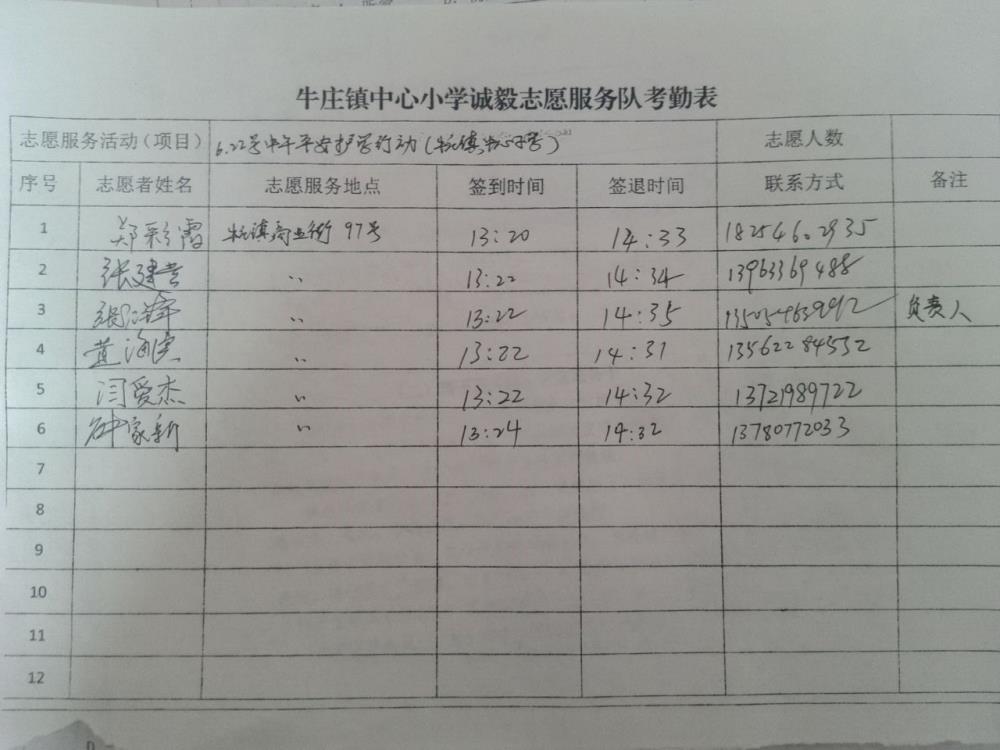 牛庄镇中心小学诚毅志愿服务队考勤表
志愿服务活动（项目） 6.22号中午平安护学行动（牛庄镇中心小学） 志愿人数
序号 志愿者姓名 志愿服务地点 签到时间 签退时间 联系方式 备注
1 郑彩霞 牛庄镇商业街97号 13:20 14:33 18254602935
2 张建 〃 13:22 14:34 13963369488
3 〃 13:22 14:35 负责人
4 黄海滨 〃 13:22 14:31 13562284532
5 闫爱杰 〃 13:22 14:32 13721989722
6 钟家新 〃 13:24 14:32 13780772033
7
8
9
10
11
12